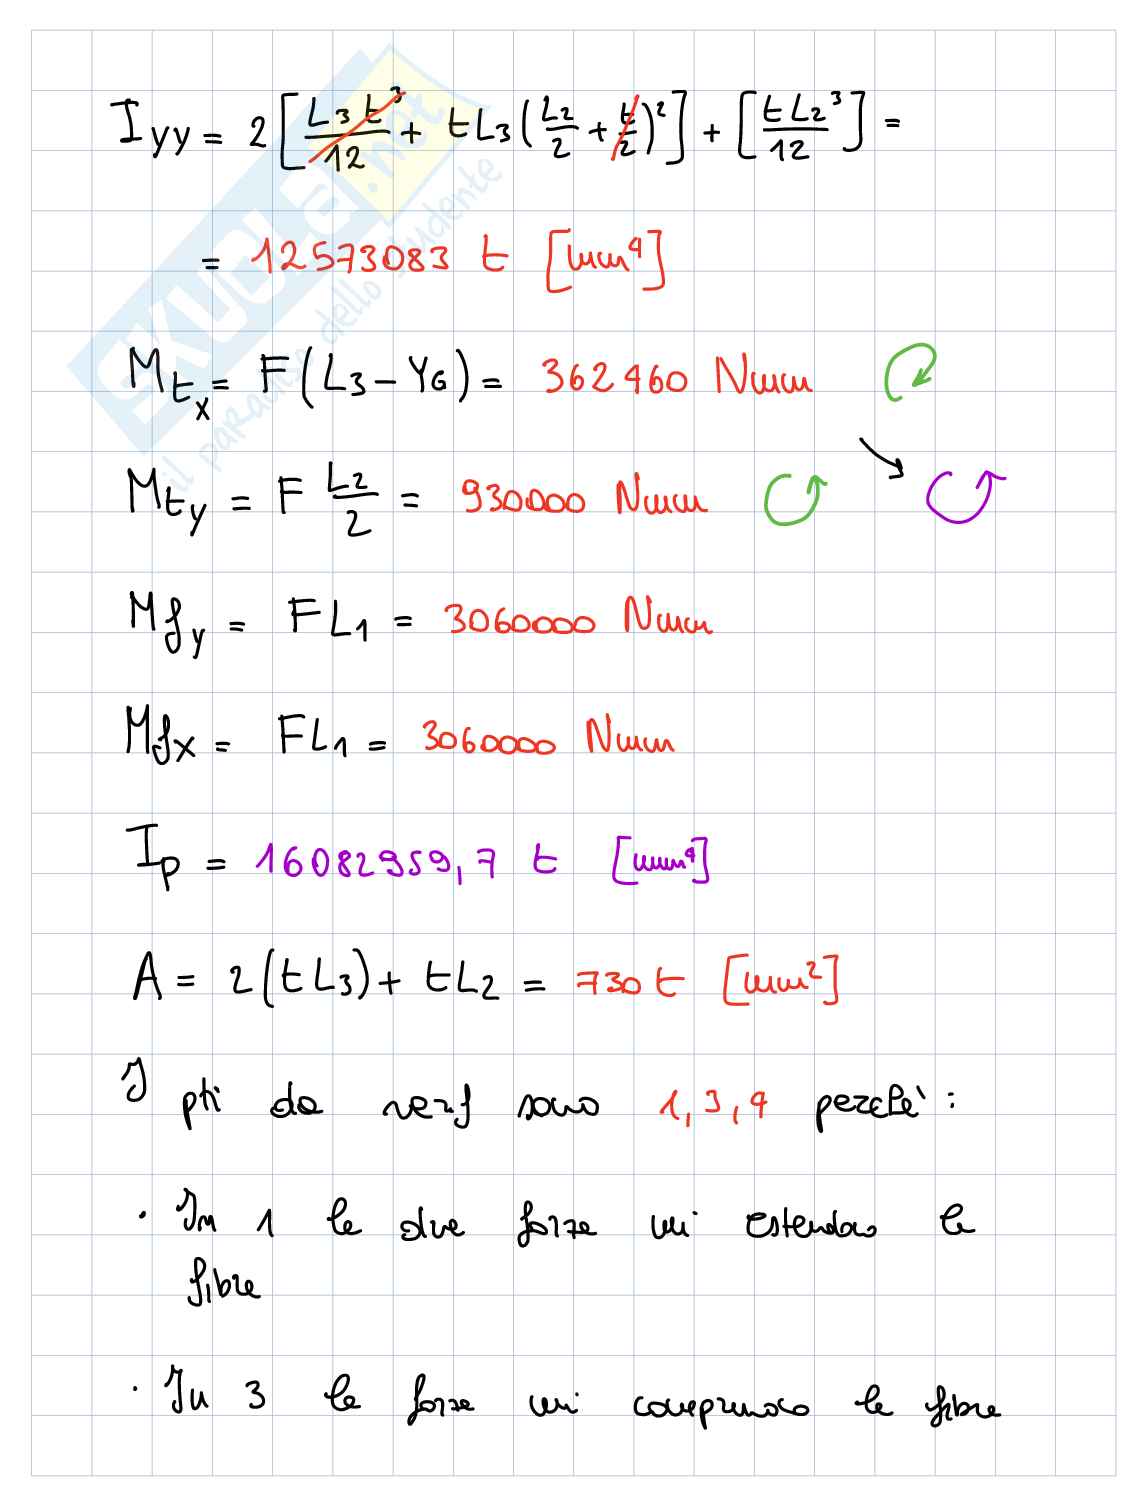 I_yy = 2 [ L3 t³/12 + t L3 ( L2/2 + t/2 )² ] + [ t L2³/12 ] =
= 12573083 t [mm⁴]
M_tx = F ( L3 - YG ) = 362460 Nmm
M_ty = F L2/2 = 930000 Nmm
M_fy = F L1 = 3060000 Nmm
M_fx = F L1 = 3060000 Nmm
I_p = 16082959,7 t [mm⁴]
A = 2 ( t L3 ) + t L2 = 730 t [mm²]
I pti da verif sono 1, 3, 4 perché :
· In 1 le due forze mi estendono le
fibre
· In 3 le forze mi comprimono le fibre
SKUOLA.net
il paradiso dello studente